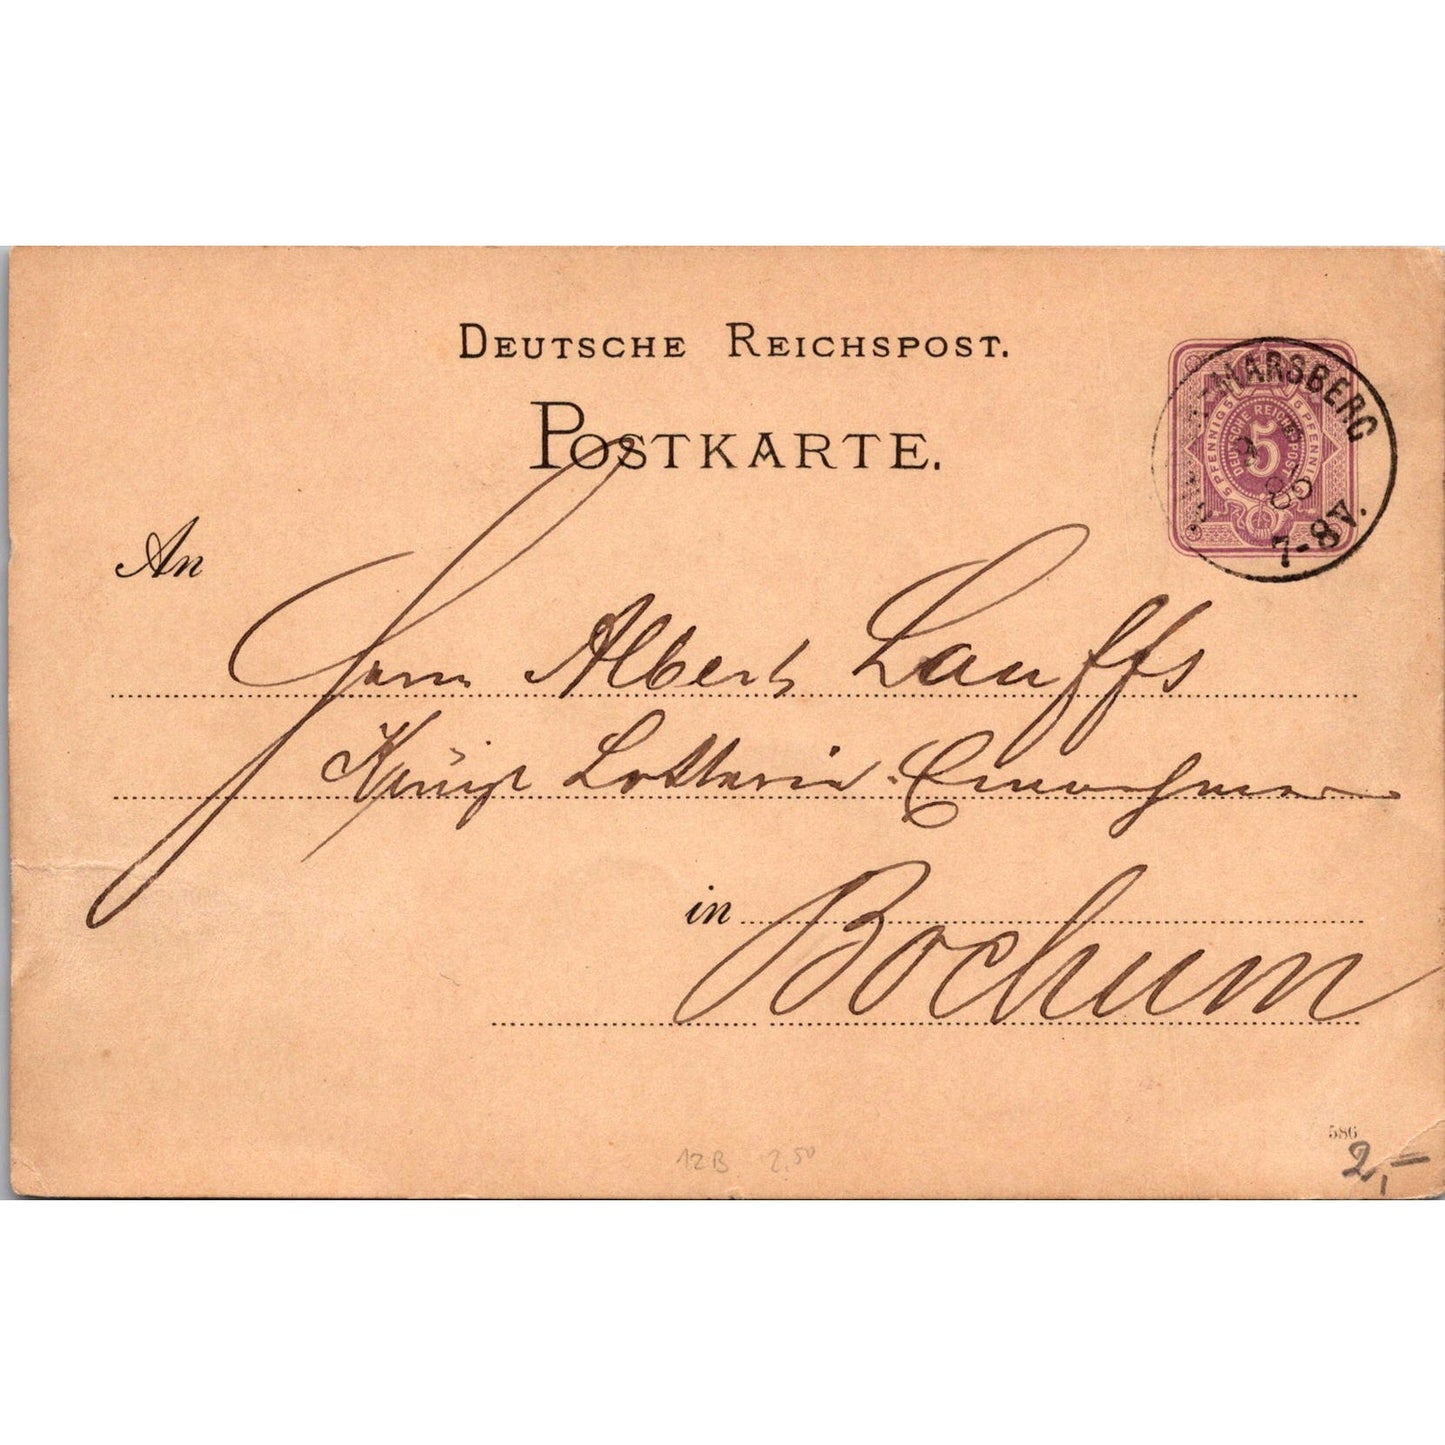 DEUTSCHE REICHSPOST.
POSTKARTE.
5 PFENNIG 5 5 PFENNIG
DEUTSCHE REICHSPOST
5
-MARSBERG
86
7-8V.
An
Herrn Albert Lauffs
Königl Lotterie-Einnehmer
in
Bochum
586
12B 2,50
2,-